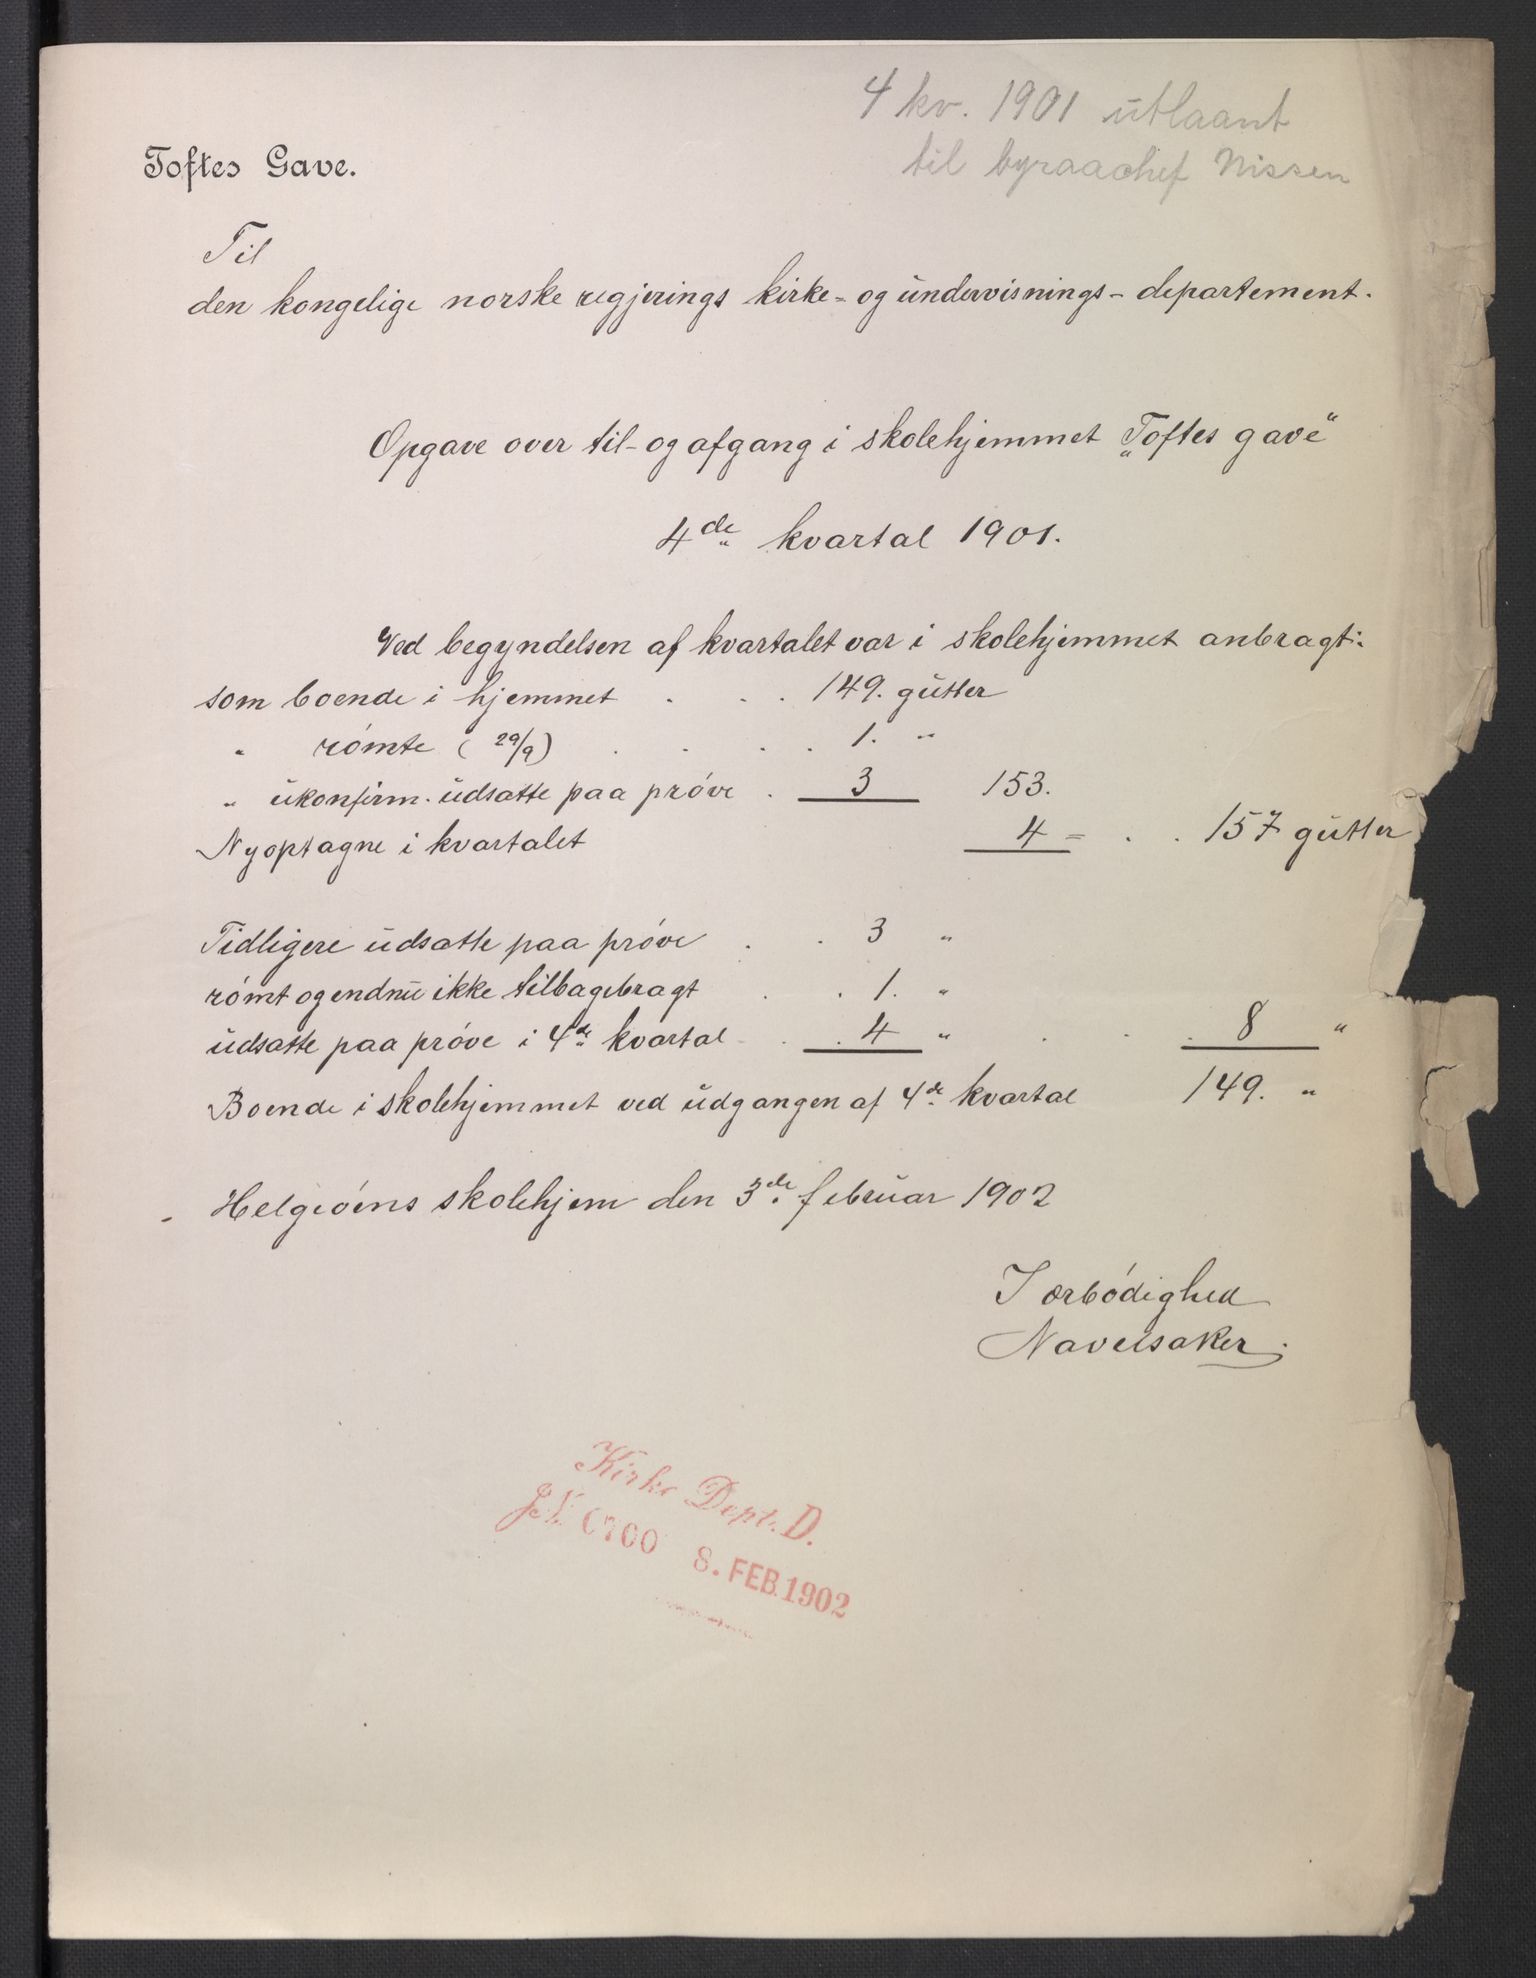 4 kv. 1901 utlaant
til byraachef Nissen
Toftes Gave.
Til
den kongelige norske regjerings kirke- og undervisnings-departement.
Opgave over til- og afgang i skolehjemmet „Toftes gave“
4de kvartal 1901.
Ved begyndelsen af kvartalet var i skolehjemmet anbragt:
som boende i hjemmet . . . 149. gutter
" rómte (29/9) . . . . 1. "
" ukonfirm. udsatte paa próve . 3 153.
Nyoptagne i kvartalet 4 = . . 157 gutter
Tidligere udsatte paa próve . . 3 "
rómt og endnu ikke tilbagebragt . . 1. "
udsatte paa próve i 4de kvartal . . 4 " . . . 8 "
Boende i skolehjemmet ved udgangen af 4de kvartal 149. "
Helgeóens skolehjem den 3de februar 1902
I ærbódighed
Navelsaker.
Kirke Dept. D.
8. FEB. 1902